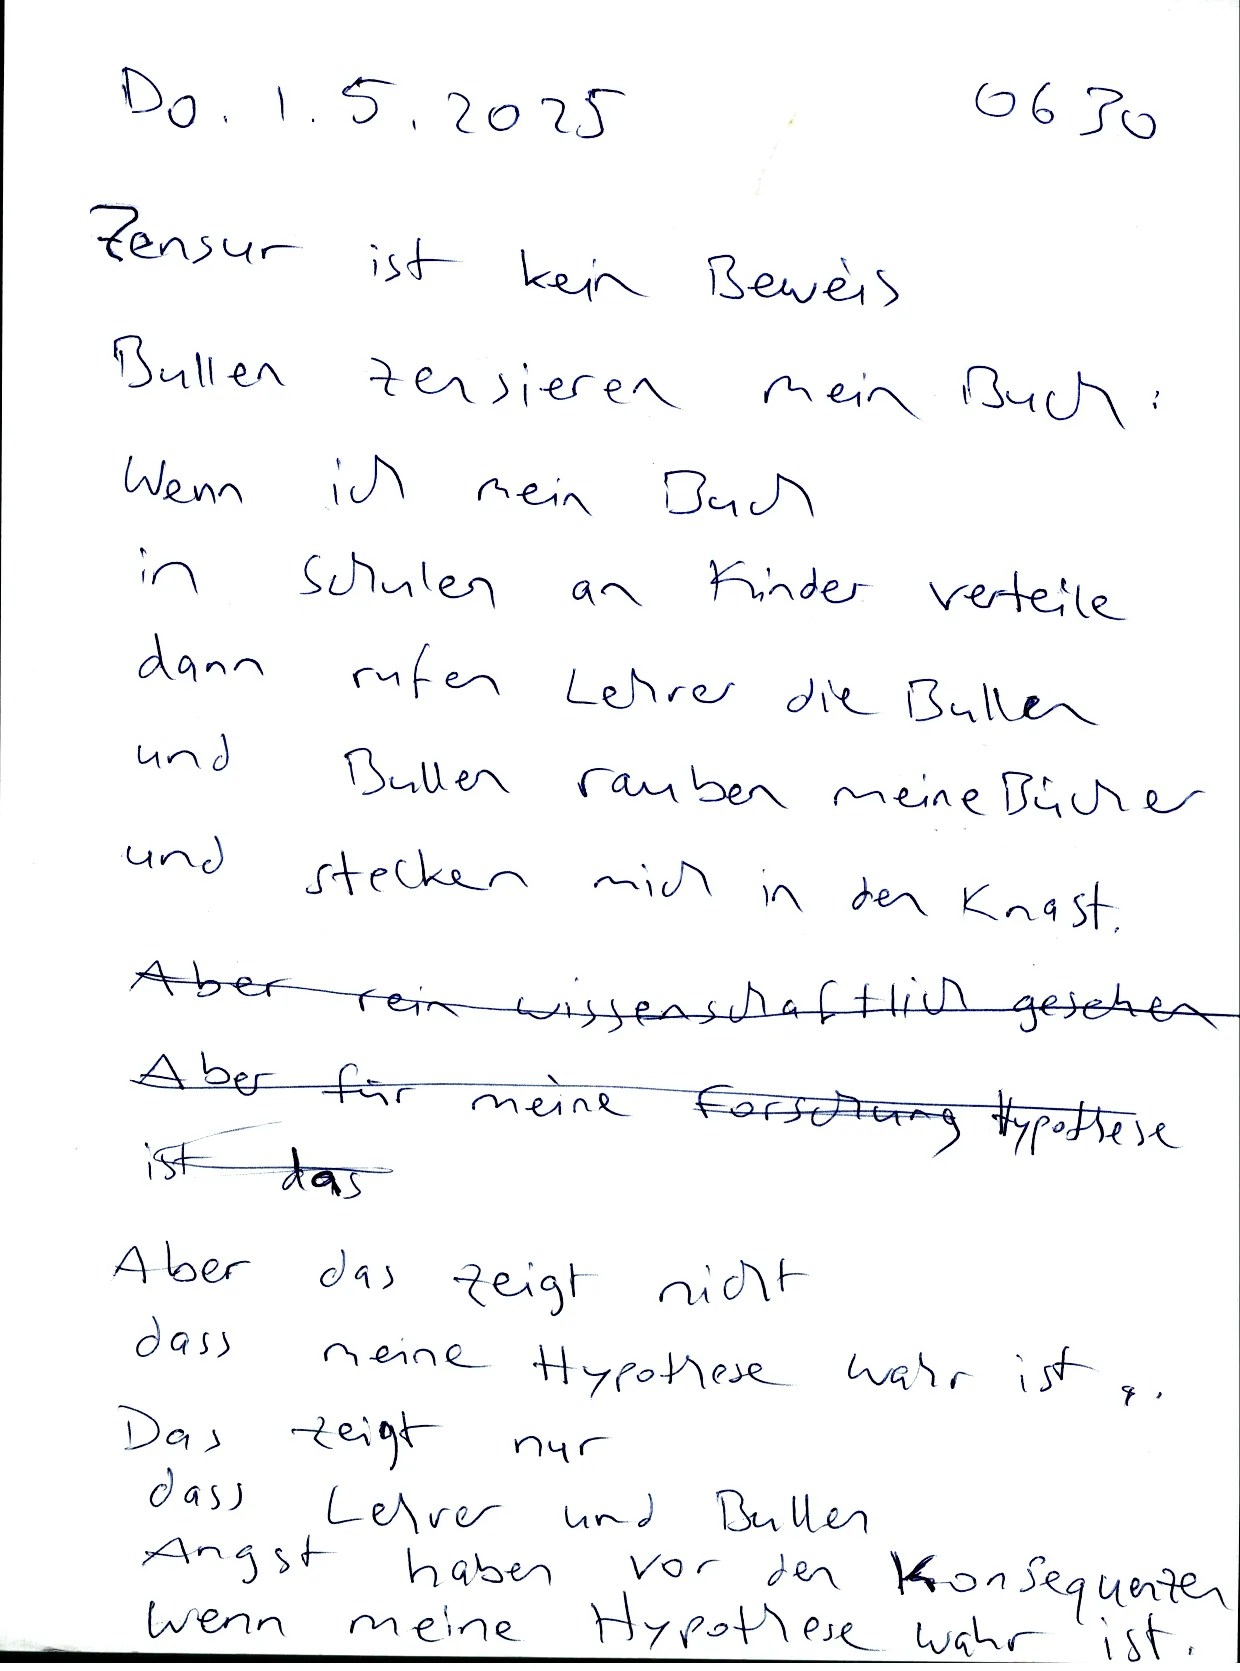 Do. 1.5.2025 0630
Zensur ist kein Beweis
Bullen zensieren mein Buch:
Wenn ich mein Buch
in Schulen an Kinder verteile
dann rufen Lehrer die Bullen
und Bullen rauben meine Bücher
und stecken mich in den Knast.
Aber rein wissenschaftlich gesehen
Aber für meine Forschung Hypothese
ist das
Aber das zeigt nicht
dass meine Hypothese wahr ist.
Das zeigt nur
dass Lehrer und Bullen
Angst haben vor den Konsequenzen
wenn meine Hypothese wahr ist.